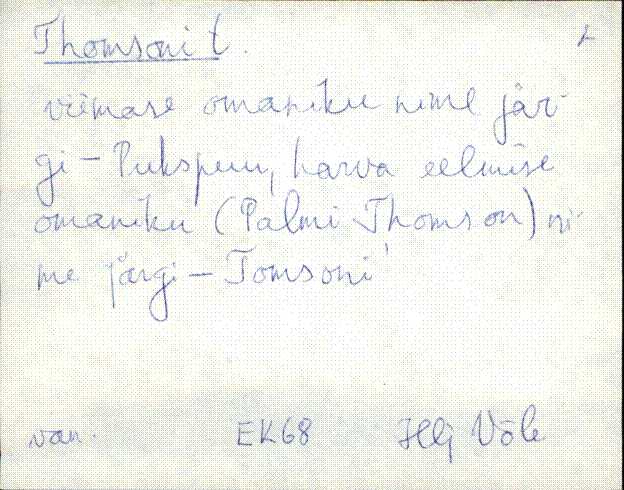 Thomsoni t.
viimase omaniku nime jär-
gi - Pukspuu, harva eelmise
omaniku (Palmi Thomson) ni-
me järgi - Tomsoni
van. EK68 Hlj Võle